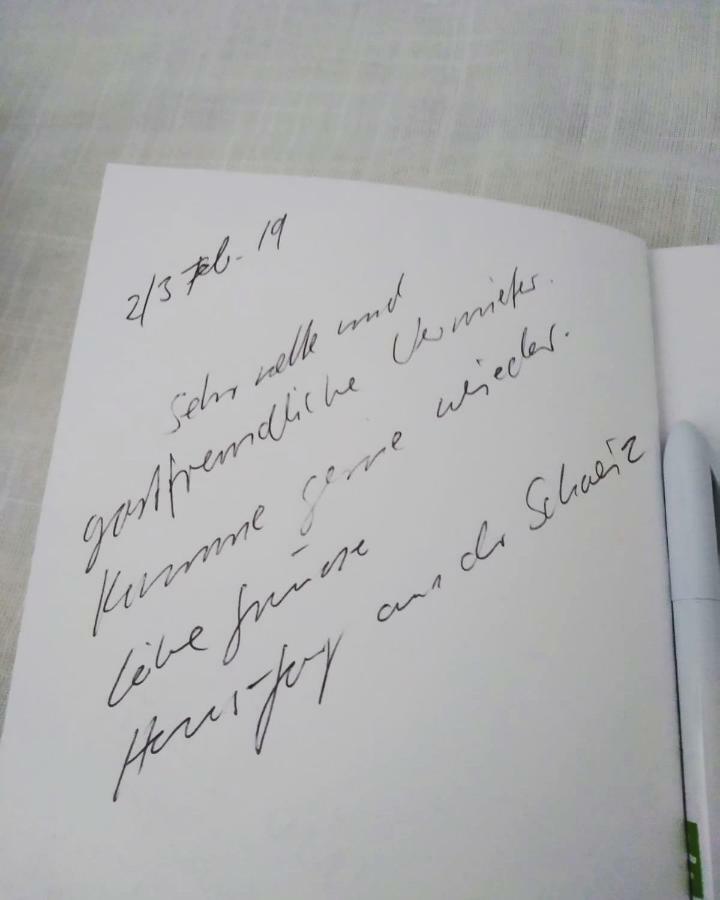 2/3 Feb. 19
Sehr nette und
gastfreundliche Vermieter.
Komme gerne wieder.
Liebe Grüsse
Hans-Jörg aus der Schweiz